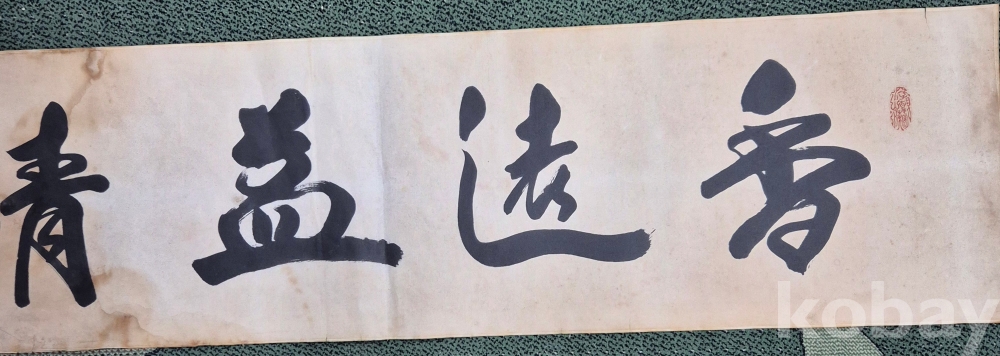 香遠益青
kobay